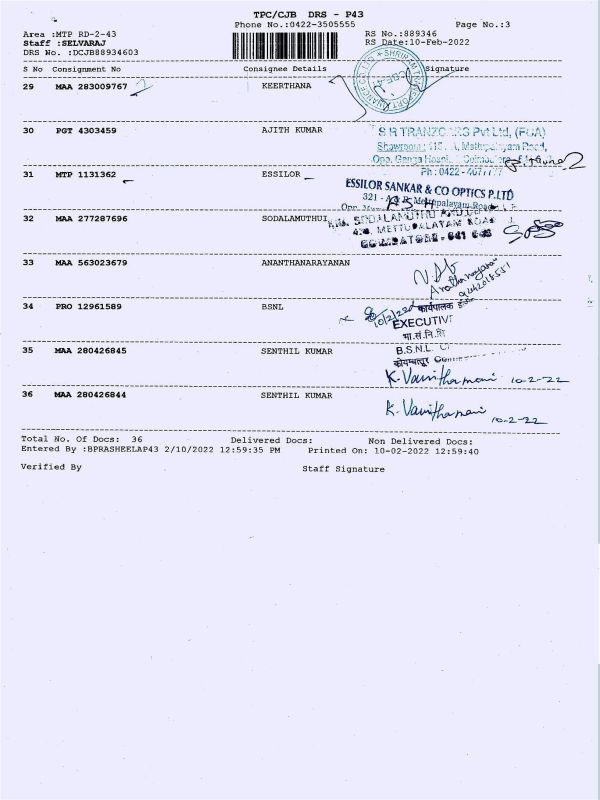 TPC/CJB DRS - P43
Phone No.:0422-3505555 Page No.:3
Area :MTP RD-2-43 RS No.:889346
Staff :SELVARAJ RS Date:10-Feb-2022
DRS No. :DCJB88934603
S No Consignment No Consignee Details Signature
29 MAA 283009767 KEERTHANA
30 PGT 4303459 AJITH KUMAR
Pvt Ltd, (FCA)
Showroom Road,
31 MTP 1131362 ESSILOR
ESSILOR SANKAR & CO OPTICS P.LTD
32 MAA 277287696 SODALAMUTHUI
METTUPALAYAM ROAD
33 MAA 563023679 ANANTHANARAYANAN
34 PRO 12961589 BSNL
10/2/22 कार्यपालक
EXECUTIVE
भा.सं.नि.लि
35 MAA 280426845 SENTHIL KUMAR
B.S.N.L.
K. Vanithamani 10-2-22
36 MAA 280426844 SENTHIL KUMAR
K. Vanithamani
10-2-22
Total No. Of Docs: 36 Delivered Docs: Non Delivered Docs:
Entered By :BPRASHEELAP43 2/10/2022 12:59:35 PM Printed On: 10-02-2022 12:59:40
Verified By Staff Signature